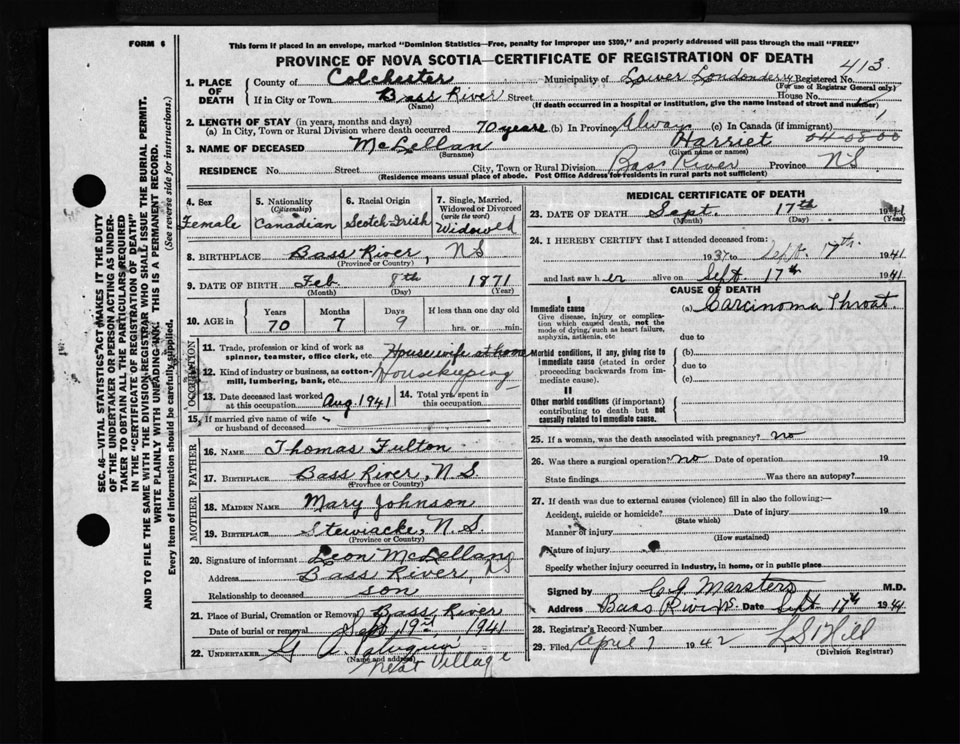 FORM 6
This form if placed in an envelope, marked "Dominion Statistics—Free, penalty for improper use $300," and properly addressed will pass through the mail "FREE"
PROVINCE OF NOVA SCOTIA—CERTIFICATE OF REGISTRATION OF DEATH
413
1. PLACE OF DEATH
County of Colchester Municipality of Lower Londonderry Registered No.
(For use of Registrar General only)
If in City or Town Bass River Street House No.
(Name) (If death occurred in a hospital or institution, give the name instead of street and number)
2. LENGTH OF STAY (in years, months and days)
(a) In City, Town or Rural Division where death occurred 70 years (b) In Province Always (c) In Canada (if immigrant)
3. NAME OF DECEASED McLellan Harriet
(Surname) (Given name or names)
RESIDENCE No. Street City, Town or Rural Division Bass River Province NS
(Residence means usual place of abode. Post Office Address for residents in rural parts not sufficient)
4. Sex Female
5. Nationality (Citizenship) Canadian
6. Racial Origin Scotch-Irish
7. Single, Married, Widowed or Divorced (write the word) Widowed
8. BIRTHPLACE Bass River, NS
(Province or Country)
9. DATE OF BIRTH Feb. 8th 1871
(Month) (Day) (Year)
10. AGE in Years Months Days If less than one day old
70 7 9 hrs. or min.
OCCUPATION
11. Trade, profession or kind of work as spinner, teamster, office clerk, etc. Housewife at home
12. Kind of industry or business, as cotton-mill, lumbering, bank, etc. Housekeeping
13. Date deceased last worked at this occupation Aug. 1941
14. Total yrs. spent in this occupation
15. If married give name of wife or husband of deceased
FATHER
16. NAME Thomas Fulton
17. BIRTHPLACE Bass River, N.S.
(Province or Country)
MOTHER
18. MAIDEN NAME Mary Johnson
19. BIRTHPLACE Stewiacke, N.S.
(Province or Country)
20. Signature of informant Leon McLellan
Address Bass River, NS
Relationship to deceased son
21. Place of Burial, Cremation or Removal Bass River
Date of burial or removal Sept 19 1941
22. UNDERTAKER G. A.
(Name and address)
Village
MEDICAL CERTIFICATE OF DEATH
23. DATE OF DEATH Sept. 17th 1941
(Month) (Day) (Year)
24. I HEREBY CERTIFY that I attended deceased from:
1937 to Sept. 1941
and last saw h er alive on Sept 17th 1941
CAUSE OF DEATH
I
Immediate cause
Give disease, injury or complication which caused death, not the mode of dying, such as heart failure, asphyxia, asthenia, etc.
(a) Carcinoma Throat
due to
Morbid conditions, if any, giving rise to immediate cause (stated in order proceeding backwards from immediate cause).
(b)
due to
(c)
II
Other morbid conditions (if important) contributing to death but not causally related to immediate cause.
25. If a woman, was the death associated with pregnancy? no
26. Was there a surgical operation? no Date of operation 19
State findings Was there an autopsy?
27. If death was due to external causes (violence) fill in also the following:—
Accident, suicide or homicide? Date of injury 19
(State which)
Manner of injury
(How sustained)
Nature of injury
Specify whether injury occurred in industry, in home, or in public place
Signed by C. G. Marsters M.D.
Address Bass River NS. Date Sept 17th 1941
28. Registrar's Record Number
29. Filed April 7 1942 L S Hill
(Division Registrar)
SEC. 46—VITAL STATISTICS ACT MAKES IT THE DUTY
OF THE UNDERTAKER OR PERSON ACTING AS UNDER-
TAKER TO OBTAIN ALL THE PARTICULARS REQUIRED
IN THE "CERTIFICATE OF REGISTRATION OF DEATH"
AND TO FILE THE SAME WITH THE DIVISION REGISTRAR WHO SHALL ISSUE THE BURIAL PERMIT.
WRITE PLAINLY WITH UNFADING INK. THIS IS A PERMANENT RECORD.
Every item of information should be carefully supplied. (See reverse side for instructions.)